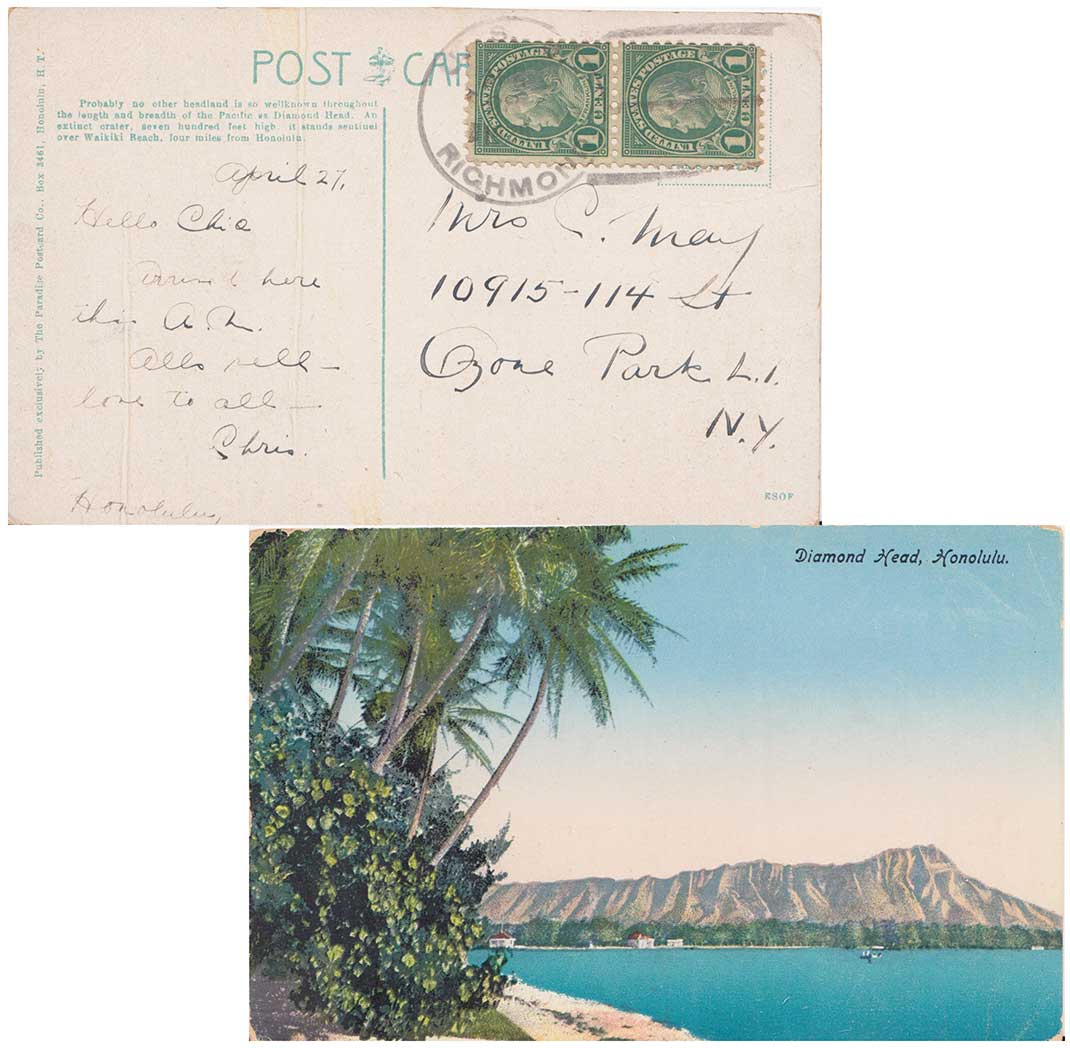 POST CAR
Probably no other headland is so wellknown throughout
the length and breadth of the Pacific as Diamond Head. An
extinct crater, seven hundred feet high, it stands sentinel
over Waikiki Beach, four miles from Honolulu.
Published exclusively by The Paradise Postcard Co., Box 3461, Honolulu, H. T.
April 27,
Hello Chic
here
this A.M.
All's well –
love to all –
Chris.
Honolulu,
RICHMON
STATES POSTAGE
1 1
STATES POSTAGE
1 1
Mrs C. May
10915-114 St
Ozone Park L.I.
N.Y.
ESOF
Diamond Head, Honolulu.